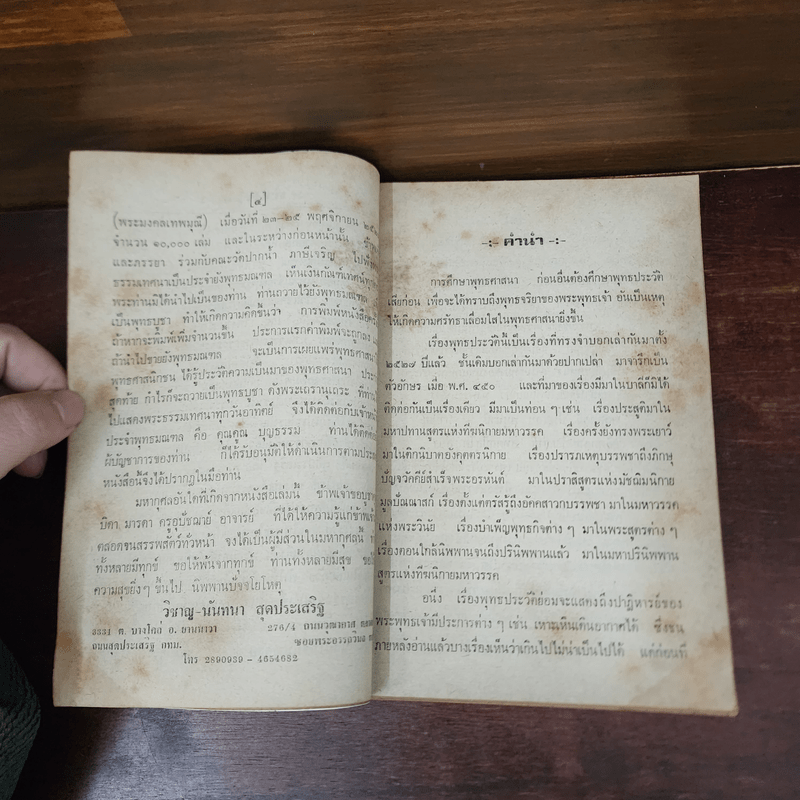 [๔]
(พระมงคลเทพมุณี) เมื่อวันที่ ๒๓-๒๕ พฤศจิกายน
จำนวน ๑๐,๐๐๐ เล่ม และในระหว่างก่อนหน้านั้น
และภรรยา ร่วมกับคณะวัดปากน้ำ ภาษีเจริญ
ธรรมเทศนาเป็นประจำยังพุทธมณฑล เห็นเงินกัณฑ์เทศน์
พระท่านมิได้นำไปเป็นของท่าน ท่านถวายไว้ยังพุทธมณฑล
เป็นพุทธบูชา ทำให้เกิดความคิดขึ้นเวจ การพิมพ์หนังสือ
ถ้าหากจะพิมพ์เพิ่มจำนวนขึ้น ประการแรกค่าพิมพ์จะถูกลง
ถ้านำไปขายยังพุทธมณฑล จะเป็นการเผยแพร่พุทธศาสนา
พุทธศาสนิกชน ได้รู้ประวัติความเป็นมาของพุทธศาสนา
สุดท้าย กำไรก็จะถวายเป็นพุทธบูชา ดังพระเถรานุเถระ
ไปแสดงพระธรรมเทศนาทุกวันอาทิตย์ จึงได้ติดต่อกับเจ้าหน้า
ประจำพุทธมณฑล คือ คุณคูณ บุญธรรม ท่านได้ติดต่อ
ผู้บัญชาการของท่าน ก็ได้รับอนุมัติให้ดำเนินการตาม
หนังสือนี้จึงได้ปรากฏในมือท่าน
มหากุศลอันใดที่เกิดจากหนังสือเล่มนี้ ข้าพเจ้าขอบูชา
บิดา มารดา ครูอุปัชฌาย์ อาจารย์ ที่ได้ให้ความรู้แก่ข้าพเจ้า
ตลอดจนสรรพสัตว์ทั่วหน้า จงได้เป็นผู้มีส่วนในมหากุศลนี้
ทั้งหลายมีทุกข์ ขอให้พ้นจากทุกข์ ท่านทั้งหลายมีสุข
ความสุขยิ่งๆ ขึ้นไป นิพพานปัจจโยโหตุ
วิชาญ-นันทนา สุดประเสริฐ
ต. บางโคล่ อ. ยานนาวา 276/4 ถนนวุฒากาศ
ถนนสุดประเสริฐ กทม. ซอยพระอรรถวิมล
โทร 2890939 - 4654682
-:- คำนำ -:-
การศึกษาพุทธศาสนา ก่อนอื่นต้องศึกษาพุทธประวัติ
เสียก่อน เพื่อจะได้ทราบถึงพุทธจริยาของพระพุทธเจ้า อันเป็นเหตุ
ให้เกิดความศรัทธาเลื่อมใสในพุทธศาสนายิ่งขึ้น
เรื่องพุทธประวัตินี้เป็นเรื่องที่ทรงจำบอกเล่ากันมาตั้ง
๒๕๒๗ ปีแล้ว ชั้นเดิมบอกเล่ากันมาด้วยปากเปล่า มาจารึกเป็น
ตัวอักษร เมื่อ พ.ศ. ๔๕๐ และที่มาของเรื่องมีมาในบาลีก็มิได้
ติดต่อกันเป็นเรื่องเดียว มีมาเป็นท่อน ๆ เช่น เรื่องประสูติมาใน
มหาปทานสูตรแห่งทีฆนิกายมหาวรรค เรื่องครั้งยังทรงพระเยาว์
มาในติกนิบาตอังคุตตรนิกาย เรื่องปรารภเหตุบรรพชาถึงภิกษุ
ปัญจวัคคีย์สำเร็จพระอรหันต์ มาในปราสิสูตรแห่งมัชฌิมนิกาย
มูลปัณณาสก์ เรื่องตั้งแต่ตรัสรู้ถึงอัคคสาวกบรรพชา มาในมหาวรรค
แห่งพระวินัย เรื่องบำเพ็ญพุทธกิจต่าง ๆ มาในพระสูตรต่าง ๆ
เรื่องตอนใกล้นิพพานจนถึงปรินิพพานแล้ว มาในมหาปรินิพพาน
สูตรแห่งทีฆนิกายมหาวรรค
อนึ่ง เรื่องพุทธประวัติย่อมจะแสดงถึงปาฏิหารย์ของ
พระพุทธเจ้ามีประการต่าง ๆ เช่น เหาะเหินเดินอากาศได้ ซึ่งชน
ภายหลังอ่านแล้วบางเรื่องเห็นว่าเกินไปไม่น่าเป็นไปได้ แต่ก่อนที่